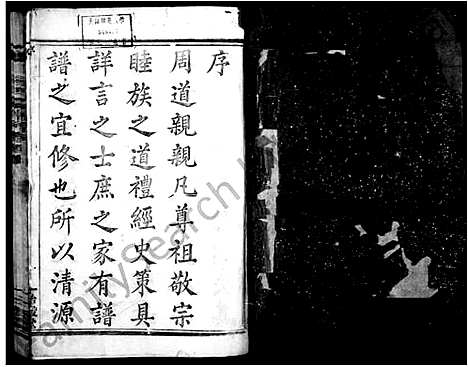 序
周道親親凡尊祖敬宗
睦族之道禮經史策具
詳言之士庶之家有譜
譜之宜修也所以清源